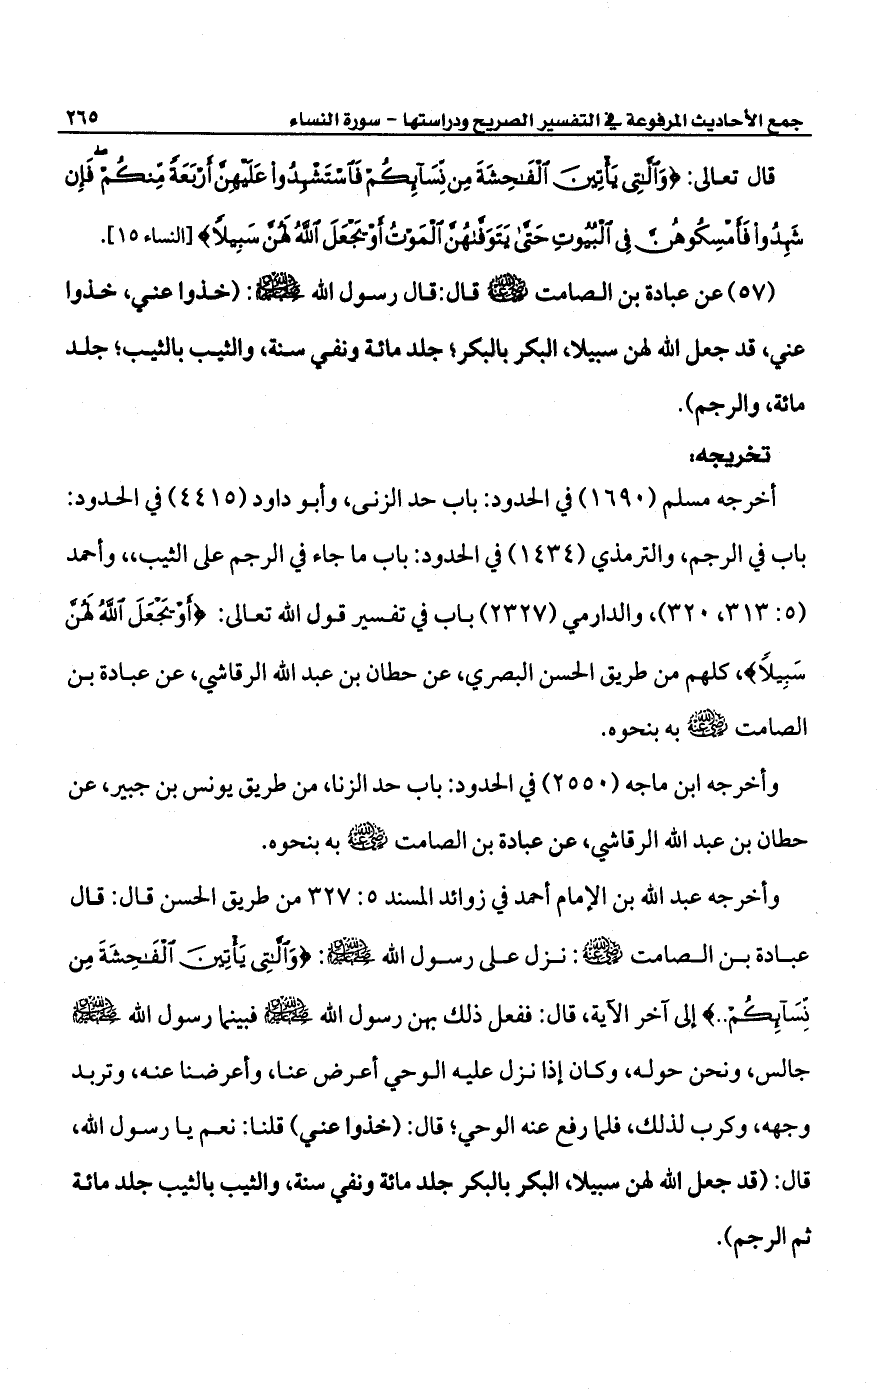 جمع الأحاديث المرفوعة في التفسير الصريح ودراستها - سورة النساء ٢٦٥
قال تعالى: ﴿وَٱلَّٰتِى يَأْتِينَ ٱلْفَٰحِشَةَ مِن نِّسَآئِكُمْ فَٱسْتَشْهِدُوا۟ عَلَيْهِنَّ أَرْبَعَةً مِّنكُمْ ۖ فَإِن
شَهِدُوا۟ فَأَمْسِكُوهُنَّ فِى ٱلْبُيُوتِ حَتَّىٰ يَتَوَفَّىٰهُنَّ ٱلْمَوْتُ أَوْ يَجْعَلَ ٱللَّهُ لَهُنَّ سَبِيلًا﴾ [النساء ١٥].
(٥٧) عن عبادة بن الصامت رضي الله عنه قال: قال رسول الله ﷺ: (خذوا عني، خذوا
عني، قد جعل الله لهن سبيلا، البكر بالبكر؛ جلد مائة ونفي سنة، والثيب بالثيب؛ جلد
مائة، والرجم).
تخريجه:
أخرجه مسلم (١٦٩٠) في الحدود: باب حد الزنى، وأبو داود (٤٤١٥) في الحدود:
باب في الرجم، والترمذي (١٤٣٤) في الحدود: باب ما جاء في الرجم على الثيب،، وأحمد
(٥: ٣١٣، ٣٢٠)، والدارمي (٢٣٢٧) باب في تفسير قول الله تعالى: ﴿أَوْ يَجْعَلَ ٱللَّهُ لَهُنَّ
سَبِيلًا﴾، كلهم من طريق الحسن البصري، عن حطان بن عبد الله الرقاشي، عن عبادة بن
الصامت رضي الله عنه به بنحوه.
وأخرجه ابن ماجه (٢٥٥٠) في الحدود: باب حد الزنا، من طريق يونس بن جبير، عن
حطان بن عبد الله الرقاشي، عن عبادة بن الصامت رضي الله عنه به بنحوه.
وأخرجه عبد الله بن الإمام أحمد في زوائد المسند ٥: ٣٢٧ من طريق الحسن قال: قال
عبادة بن الصامت رضي الله عنه: نزل على رسول الله ﷺ: ﴿وَٱلَّٰتِى يَأْتِينَ ٱلْفَٰحِشَةَ مِن
نِّسَآئِكُمْ..﴾ إلى آخر الآية، قال: ففعل ذلك بهن رسول الله ﷺ فبينما رسول الله ﷺ
جالس، ونحن حوله، وكان إذا نزل عليه الوحي أعرض عنا، وأعرضنا عنه، وتربد
وجهه، وكرب لذلك، فلما رفع عنه الوحي؛ قال: (خذوا عني) قلنا: نعم يا رسول الله،
قال: (قد جعل الله لهن سبيلا، البكر بالبكر جلد مائة ونفي سنة، والثيب بالثيب جلد مائة
ثم الرجم).